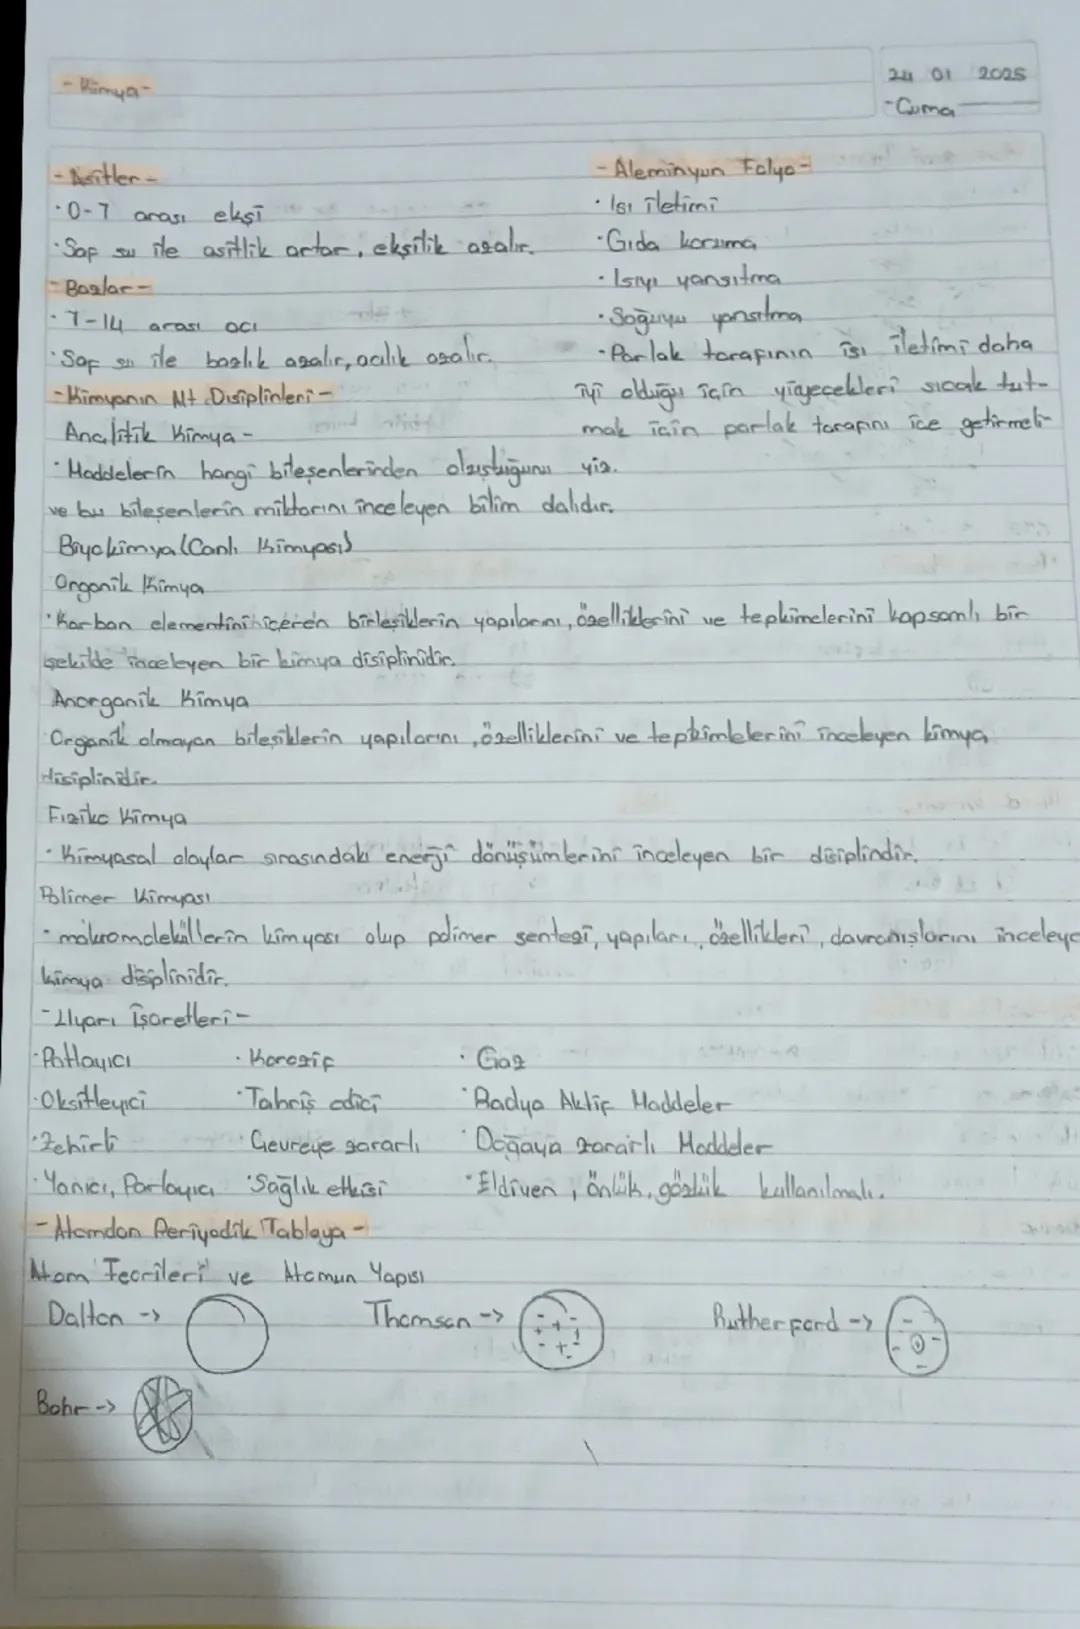 -Kimya-
24 01 2025
-Cuma
-Asitler-
·0-7 arası ekşi
·Saf su ile asitlik artar, ekşilik azalır.
-Bazlar-
·7-14 arası acı
·Saf su ile bazlık azalır, acılık azalır.
-Aleminyum Folyo-
·Isı iletimi
·Gıda koruma
·Isıyı yansıtma
·Soğuyu yansıtma
·Parlak tarafının ısı iletimi daha
iyi olduğu için yiyecekleri sıcak tut-
mak için parlak tarafını içe getirmeli-
yiz.
-Kimyanın Alt Disiplinleri-
Analitik Kimya-
·Maddelerin hangi bileşenlerinden oluştuğunu
ve bu bileşenlerin miktarını inceleyen bilim dalıdır.
Biyokimya (Canlı Kimyası)
Organik Kimya
·Karbon elementini içeren birleşiklerin yapılarını, özelliklerini ve tepkimelerini kapsamlı bir
şekilde inceleyen bir kimya disiplinidir.
Anorganik Kimya
Organik olmayan bileşiklerin yapılarını, özelliklerini ve tepkimlelerini inceleyen kimya
disiplinidir.
Fiziko Kimya
·Kimyasal olaylar sırasındaki enerji dönüşümlerini inceleyen bir disiplindir.
Polimer Kimyası
·makromoleküllerin kimyası olup polimer sentezi, yapıları, özellikleri, davranışlarını inceleye
kimya disiplinidir.
-Uyarı İşaretleri-
·Patlayıcı ·Korozif ·Gaz
·Oksitleyici ·Tahriş edici ·Radyo Aktif Maddeler
·Zehirli ·Çevreye zararlı ·Doğaya zararlı Maddeler
·Yanıcı, Parlayıcı ·Sağlık etkisi ·Eldiven, önlük, gözlük kullanılmalı.
-Atomdan Periyodik Tabloya-
Atom Teorileri ve Atomun Yapısı
Dalton -> Thomson -> Rutherford ->
Bohr ->